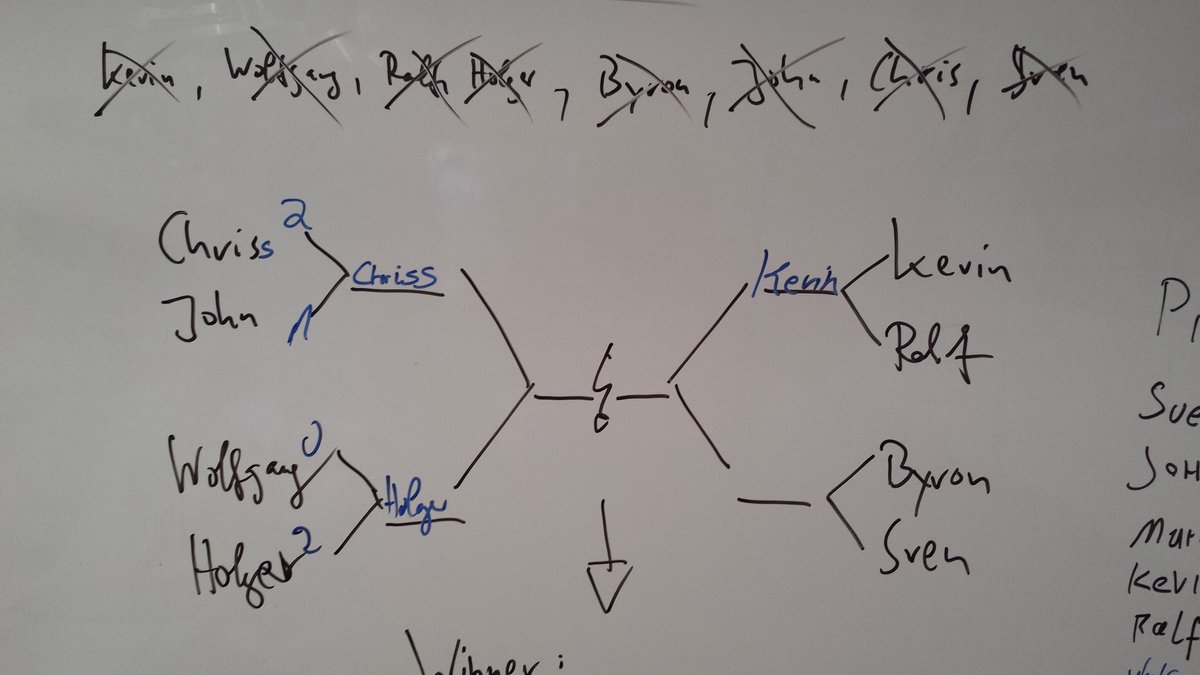 Kevin, Wolfgang, Ralf Holger, Byron, John, Chris, Sven
Chriss 2
John 1
Chriss
Wolfgang 0
Holger 2
Holger
Kevin
Kevin
Ralf
Byron
Sven
Sve
JOH
Mar
Kevi
Ralf
Winner: